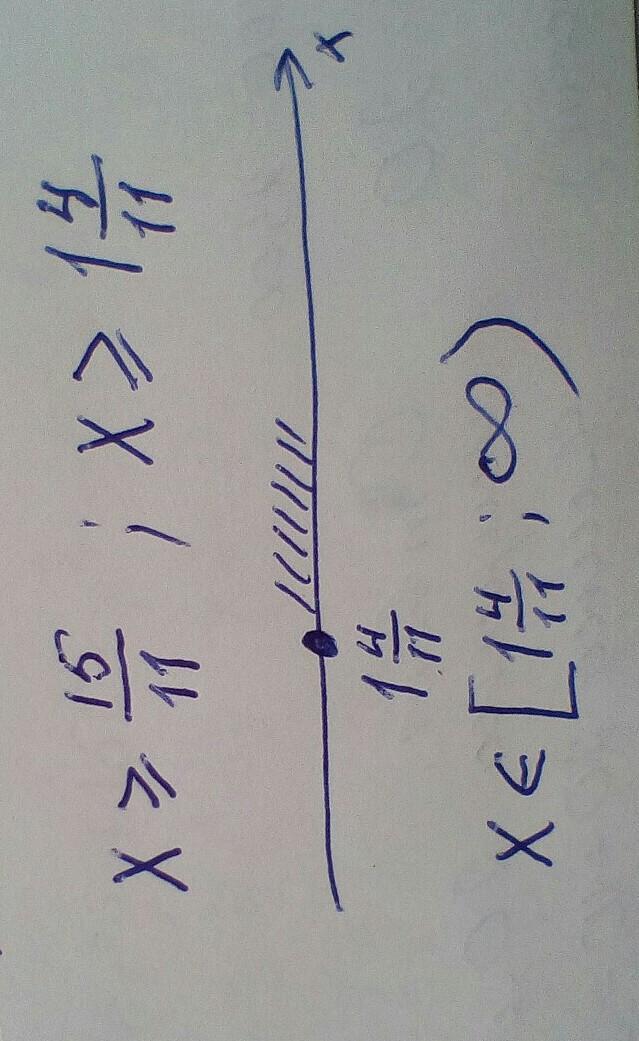 x ⩾ 15/11 ; x ⩾ 1 4/11
x
1 4/11
x ∈ [1 4/11 ; ∞)